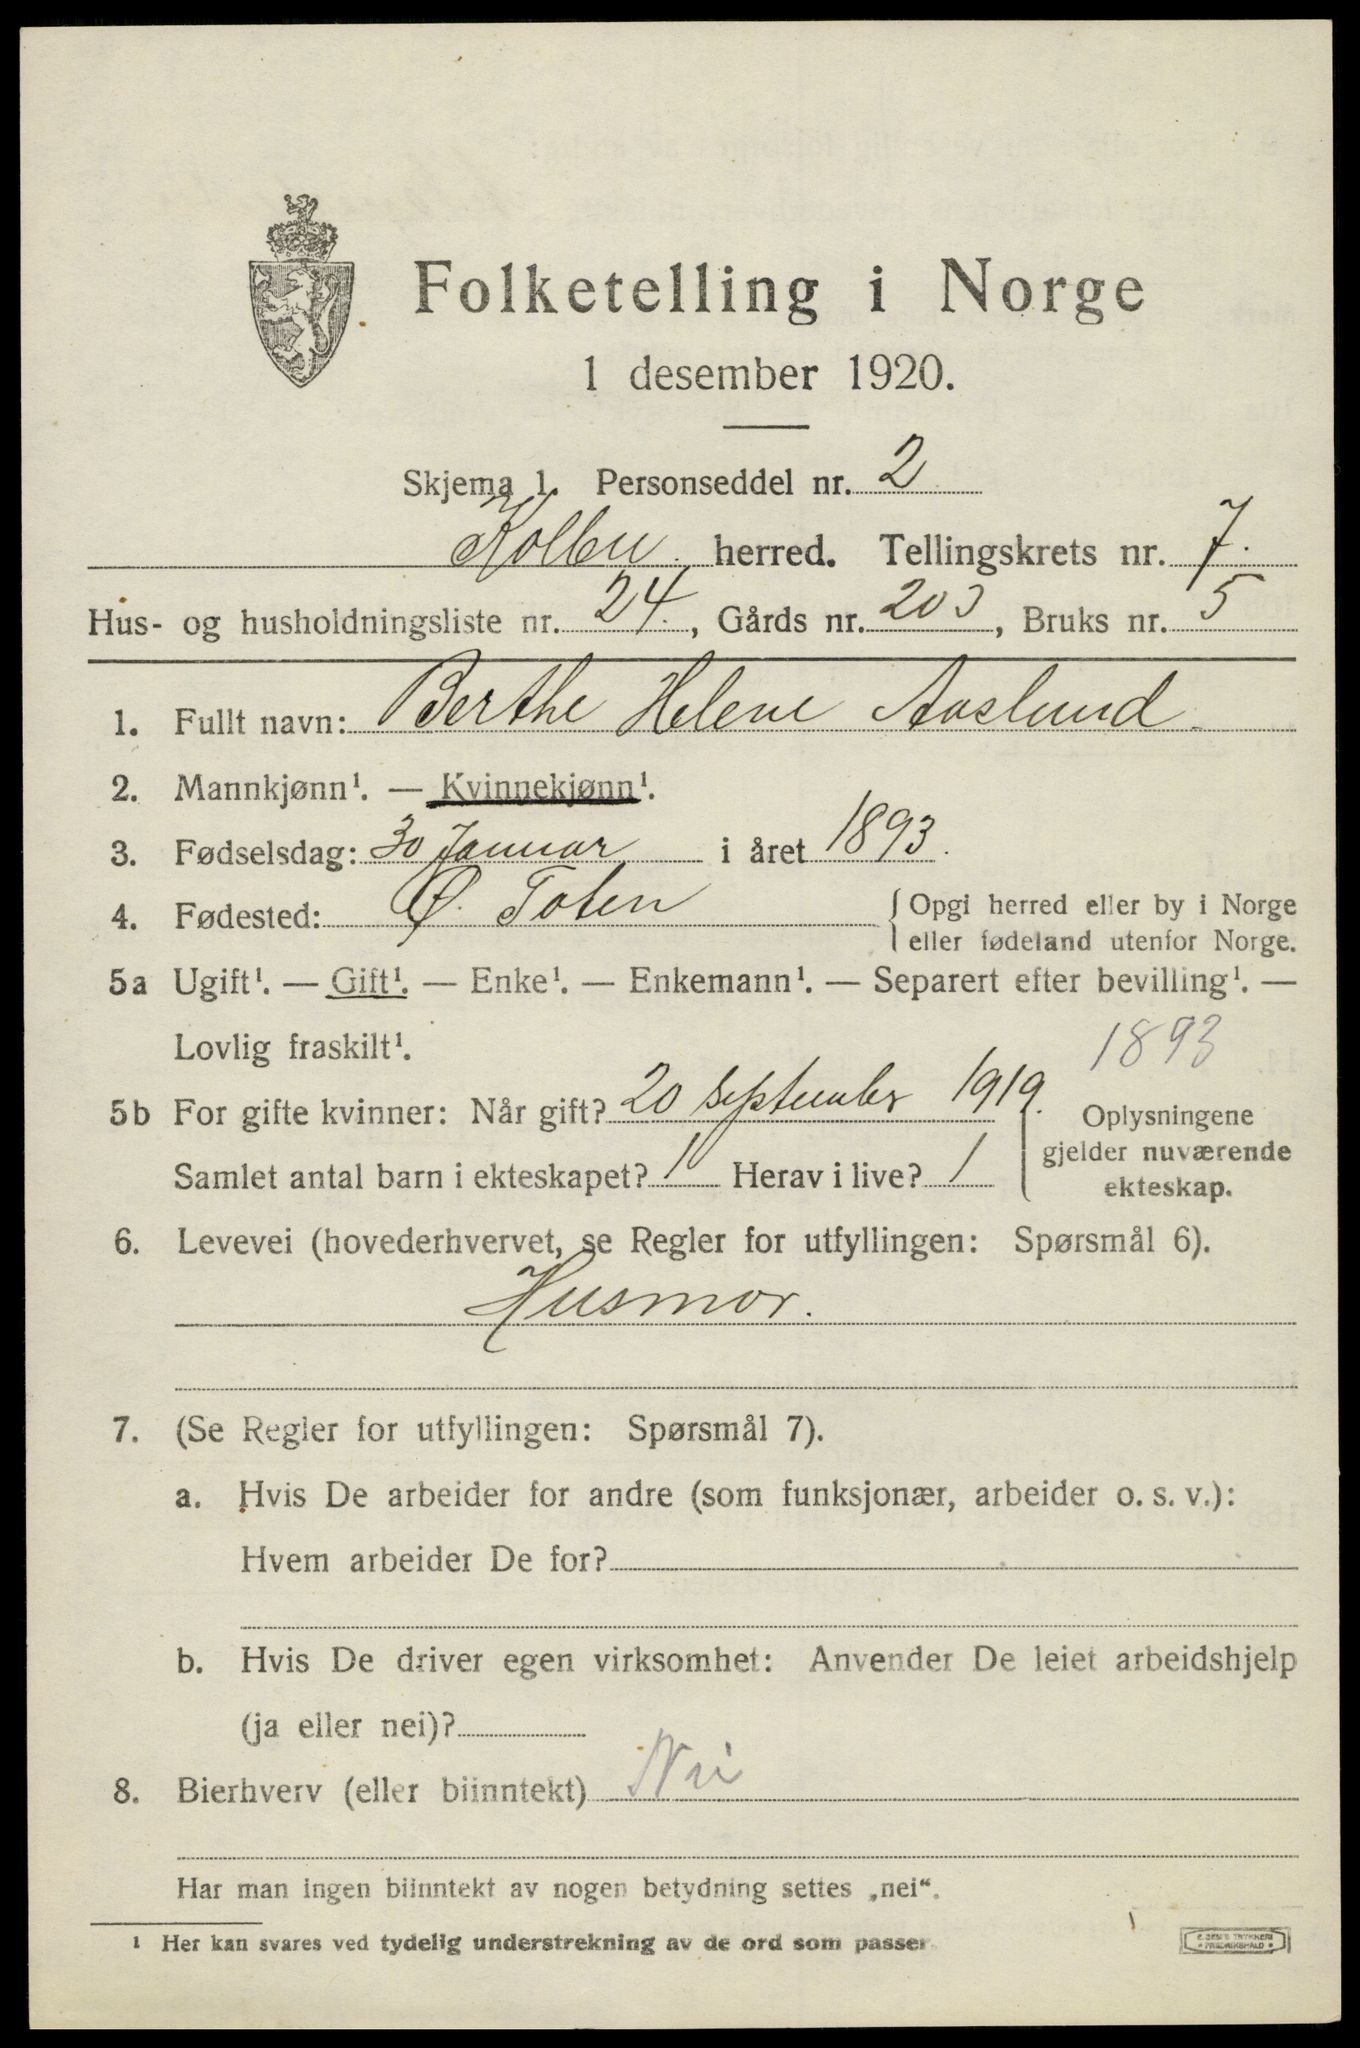 Folketelling i Norge
1 desember 1920.
Skjema 1. Personseddel nr. 2
Kolbu herred. Tellingskrets nr. 7.
Hus- og husholdningsliste nr. 24., Gårds nr. 203, Bruks nr. 5
1. Fullt navn: Berthe Helene Aaslund
2. Mannkjønn¹. — Kvinnekjønn¹.
3. Fødselsdag: 30 Januar i året 1893.
4. Fødested: Ø. Toten { Opgi herred eller by i Norge
eller fødeland utenfor Norge.
5a Ugift¹. — Gift¹. — Enke¹. — Enkemann¹. — Separert efter bevilling¹. —
Lovlig fraskilt¹.
1893
5b For gifte kvinner: Når gift? 20 september 1919. Oplysningene
gjelder nuværende
Samlet antal barn i ekteskapet? 1 Herav i live? 1 ekteskap.
6. Levevei (hovederhvervet, se Regler for utfyllingen: Spørsmål 6).
Husmor.
7. (Se Regler for utfyllingen: Spørsmål 7).
a. Hvis De arbeider for andre (som funksjonær, arbeider o. s. v.):
Hvem arbeider De for?
b. Hvis De driver egen virksomhet: Anvender De leiet arbeidshjelp
(ja eller nei)?
8. Bierhverv (eller biinntekt) Nei
Har man ingen biinntekt av nogen betydning settes „nei“.
¹ Her kan svares ved tydelig understrekning av de ord som passer